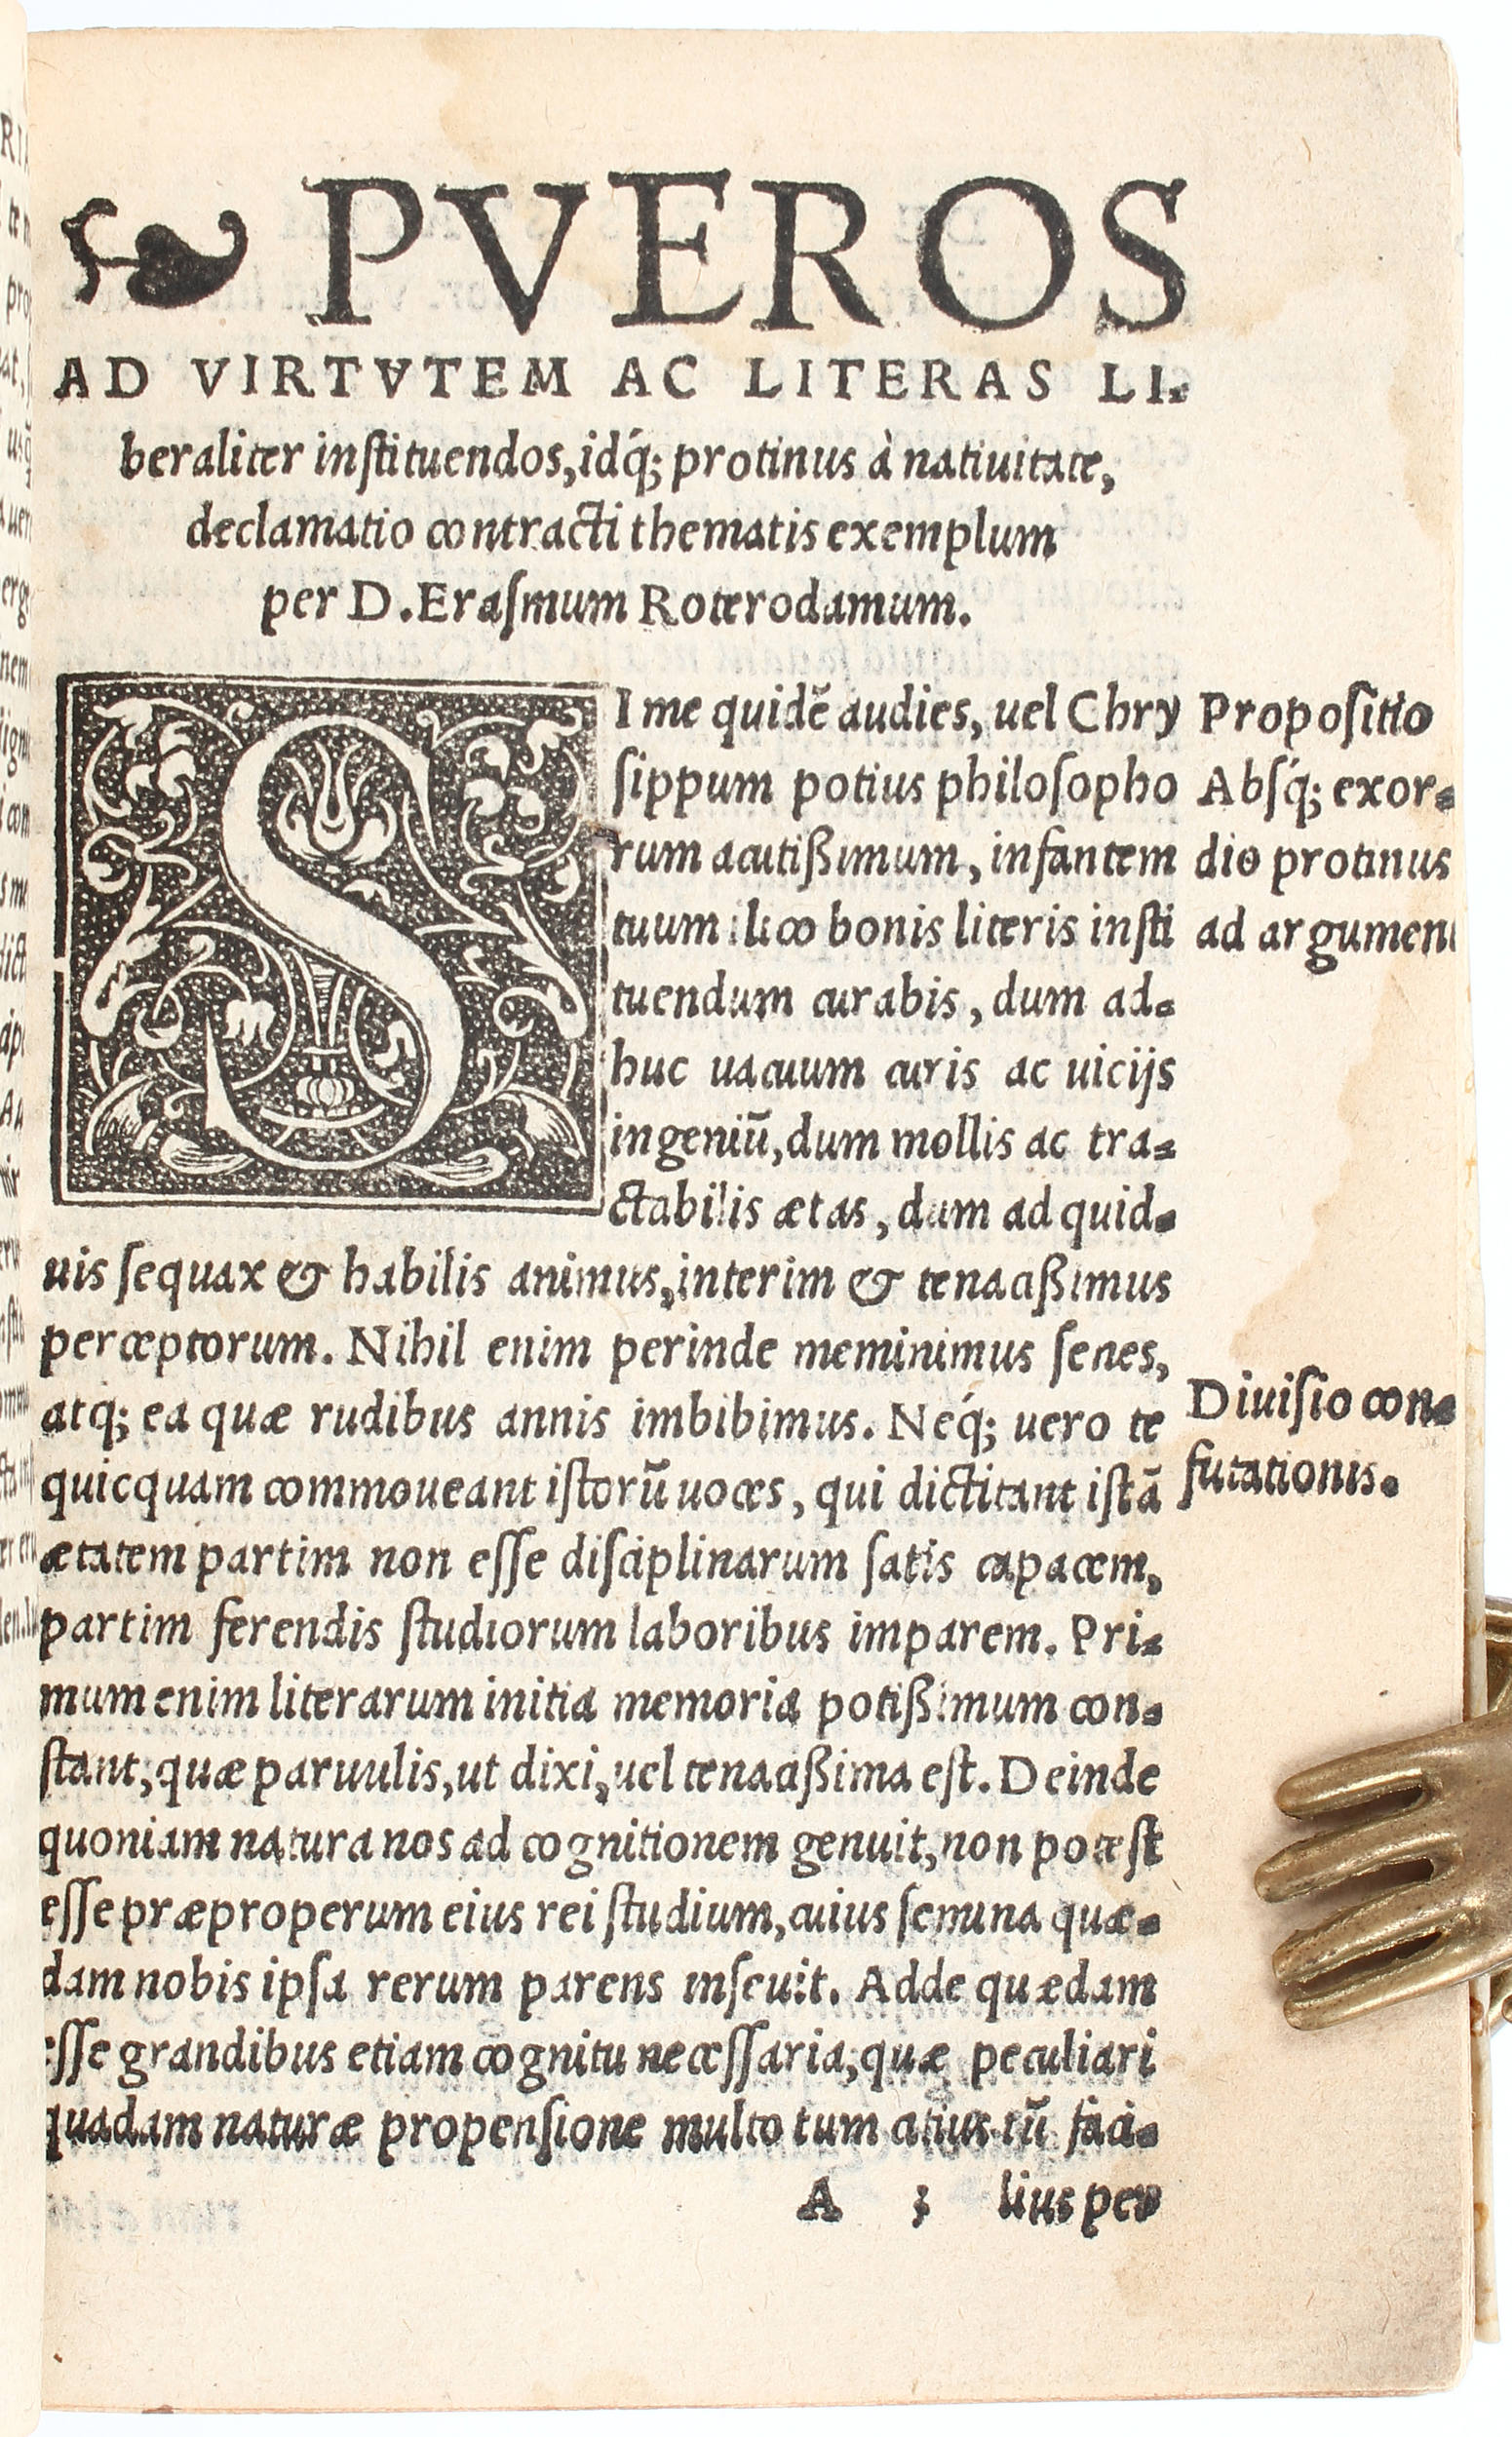 PVEROS
AD VIRTVTEM AC LITERAS LI-
beraliter inſtituendos, idq́; protinus à natiuitate,
declamatio contracti thematis exemplum
per D. Eraſmum Roterodamum.
SI me quidẽ audies, uel Chry
ſippum potius philoſopho
rum acutißimum, infantem
tuum ilico bonis literis inſti
tuendum curabis, dum ad-
huc uacuum curis ac uicijs
ingeniũ, dum mollis ac tra-
ctabilis ætas, dum ad quid-
uis ſequax & habilis animus, interim & tenacißimus
perceptorum. Nihil enim perinde meminimus ſenes,
atq; ea quæ rudibus annis imbibimus. Neq́; uero te
quicquam commoueant iſtorũ uoces, qui dictitant iſtã
ætatem partim non eſſe diſciplinarum ſatis capacem,
partim ferendis ſtudiorum laboribus imparem. Pri-
mum enim literarum initia memoria potißimum con-
ſtant, quæ paruulis, ut dixi, uel tenacißima eſt. Deinde
quoniam natura nos ad cognitionem genuit, non poteſt
eſſe præproperum eius rei ſtudium, cuius ſemina quæ-
dam nobis ipſa rerum parens inſeuit. Adde quædam
eſſe grandibus etiam cognitu neceſſaria, quæ peculiari
quadam naturæ propenſione multo tum citius tũ faci-
A 3 lius per
Propoſitio
Abſq́; exor-
dio protinus
ad argument
Diuiſio con-
futationis.